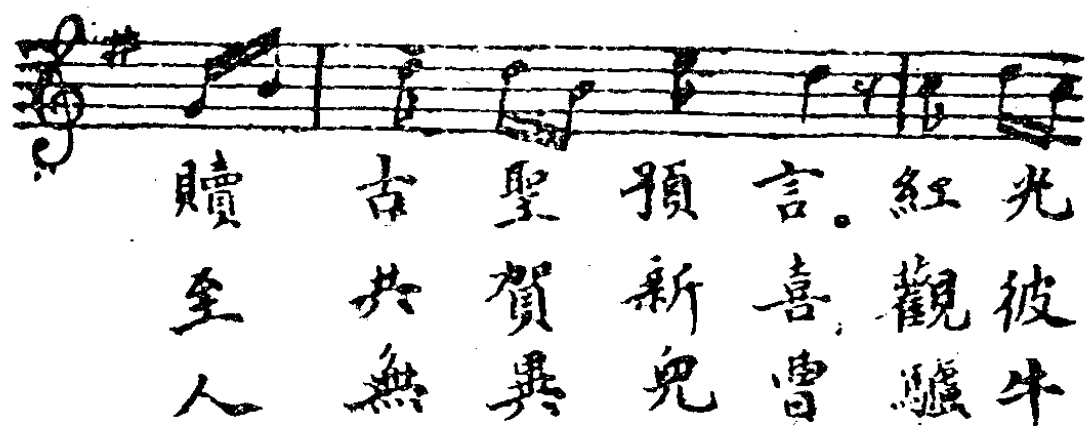 贖古聖預言。紅光
至共賀新喜，觀彼
人無異兒曹驢牛